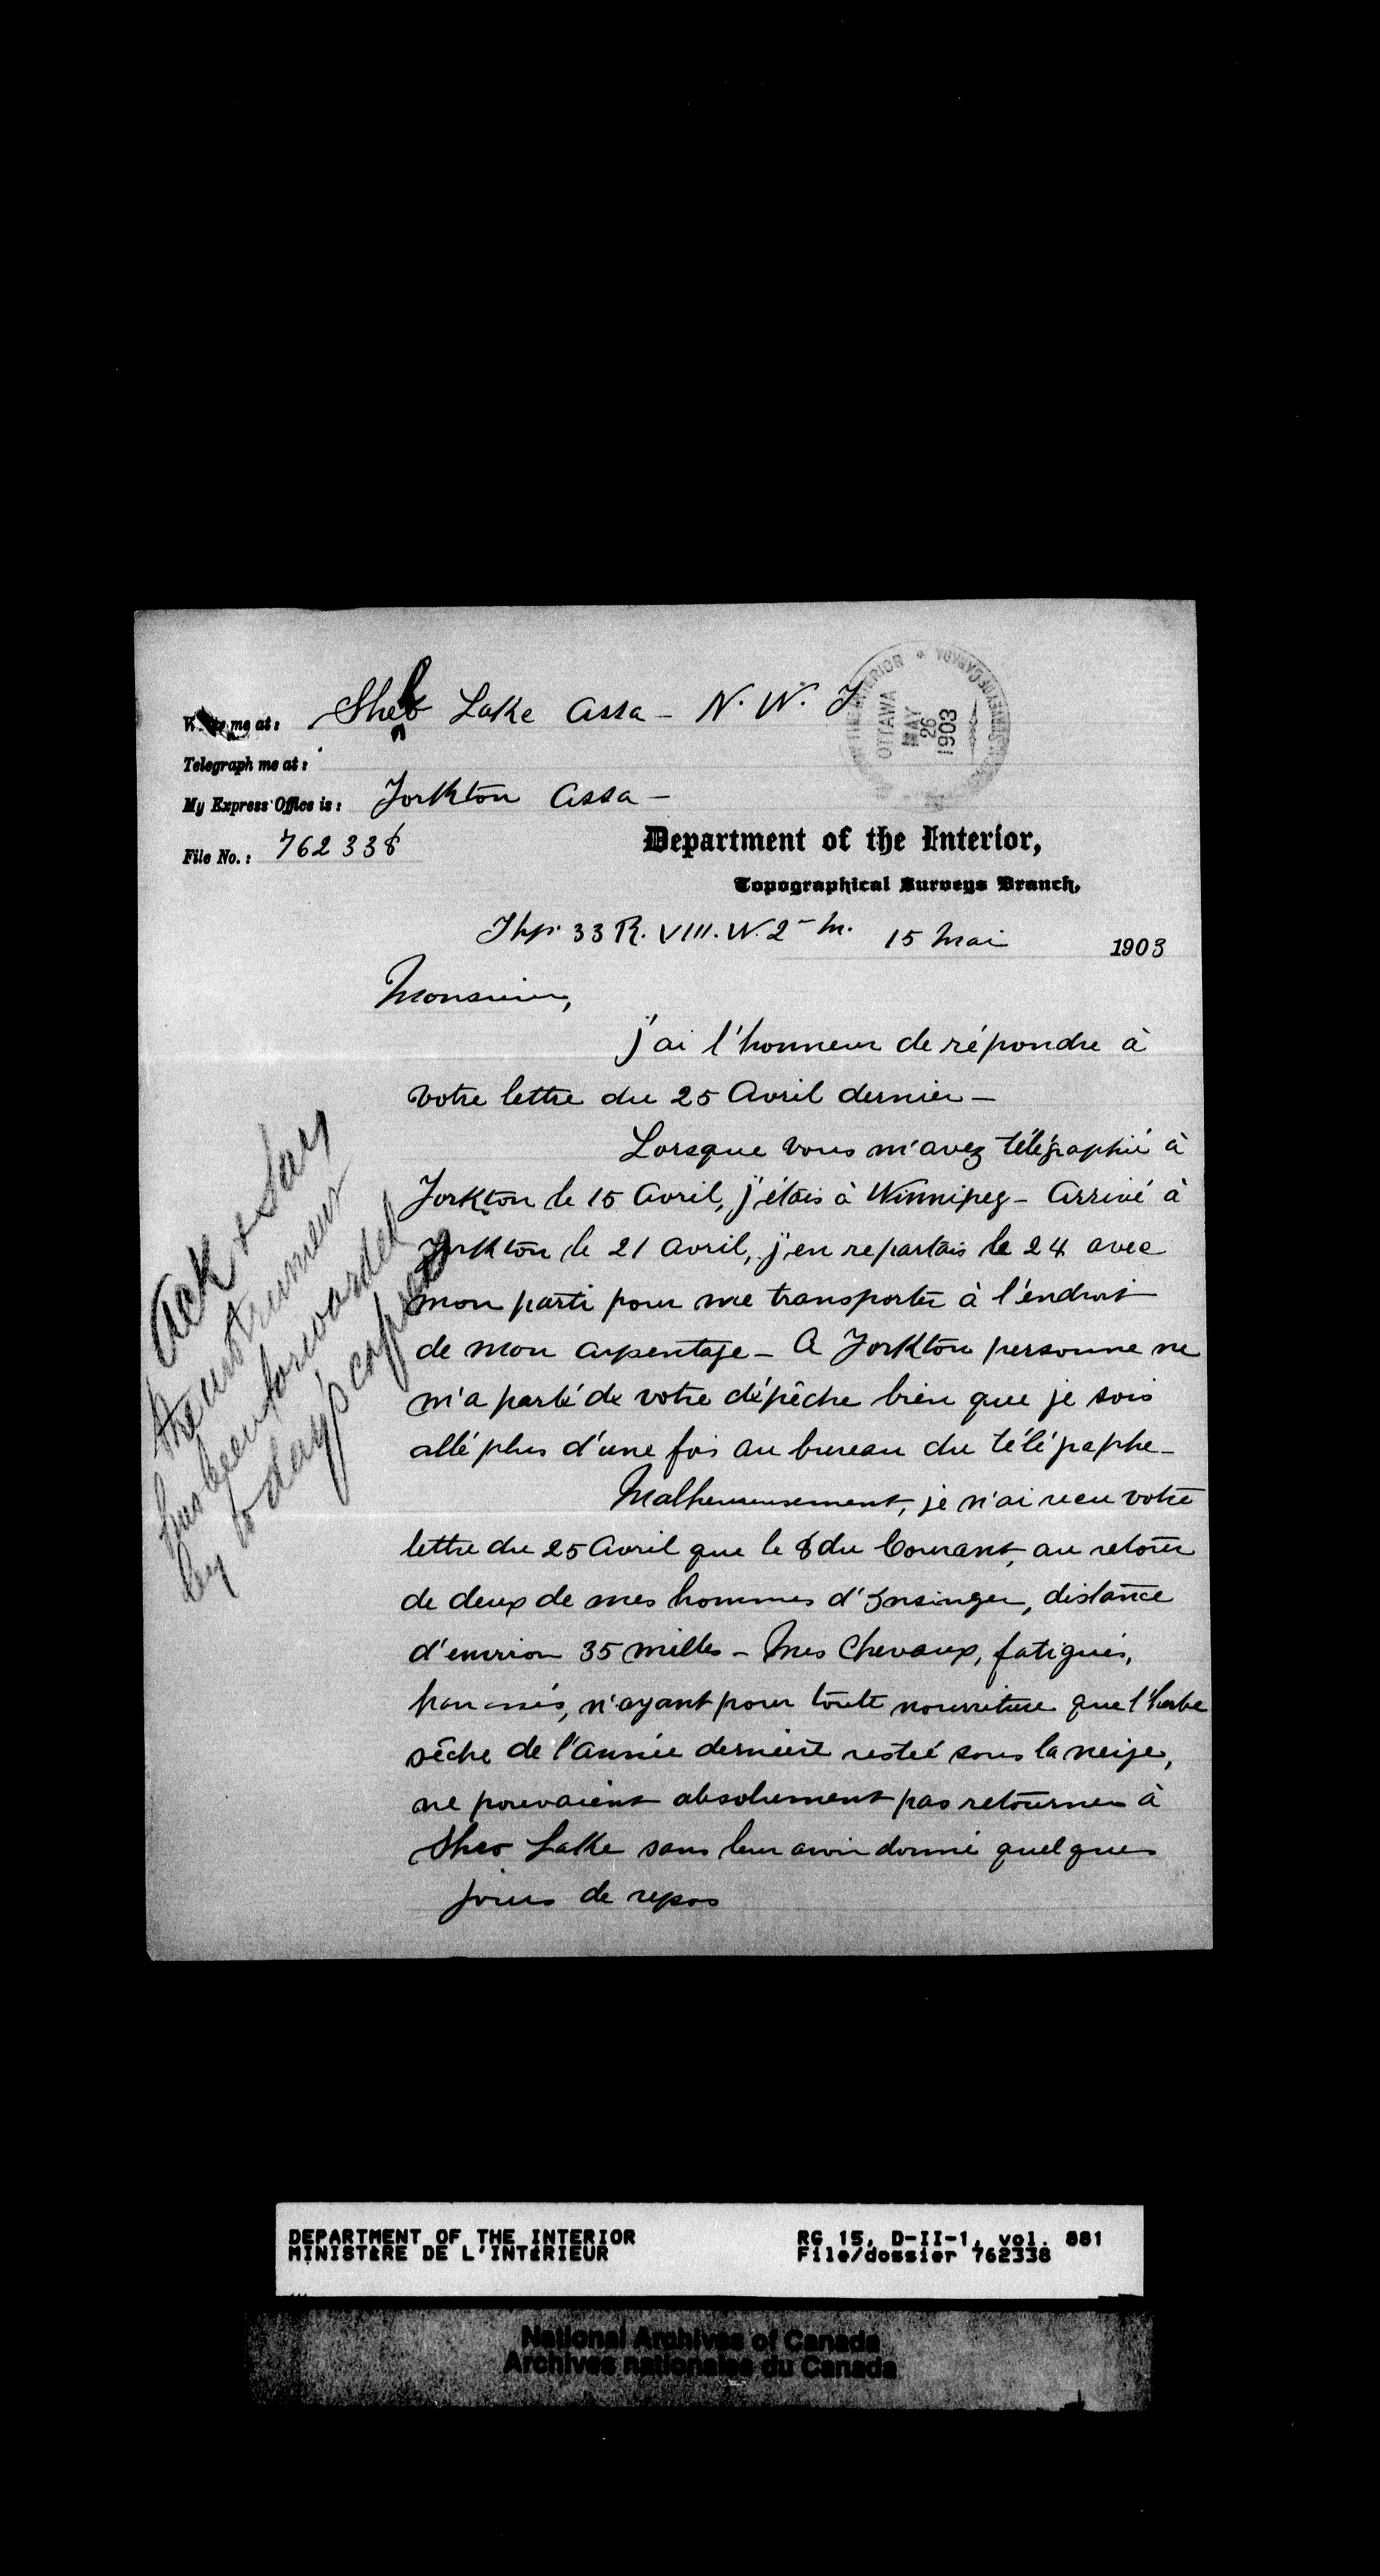 Write me at: Sheho Lake Assa - N. W. T
Telegraph me at:
My Express Office is: Yorkton Assa -
File No.: 762338
OTTAWA
MAY
26
1903
Department of the Interior,
Topographical Surveys Branch,
Thp. 33 R. VIII. W. 2 - M. 15 Mai 1903
Monsieur,
j'ai l'honneur de répondre à
votre lettre du 25 Avril dernier -
Lorsque vous m'avez télégraphié à
Yorkton le 15 Avril, j'étais à Winnipeg - Arrivé à
Yorkton le 21 Avril, j'en repartais le 24 avec
mon parti pour me transporter à l'endroit
de mon arpentage - A Yorkton personne ne
m'a parlé de votre dépêche bien que je sois
allé plus d'une fois au bureau du télégraphe -
Malheureusement, je n'ai reçu votre
lettre du 25 Avril que le 8 du Courant, au retour
de deux de mes hommes d'Insinger, distance
d'environ 35 milles - Mes Chevaux, fatigués,
harassés, n'ayant pour toute nourriture que l'herbe
sêche de l'année dernière restée sous la neige,
ne pouvaient absolument pas retourner à
Sheho Lake sans leur avoir donné quelques
jours de repos
Ack & Say
the instrument
has been forwarded
by to day's express
DEPARTMENT OF THE INTERIOR RG 15, D-II-1, vol. 881
MINISTÈRE DE L'INTÉRIEUR File/dossier 762338
National Archives of Canada
Archives nationales du Canada